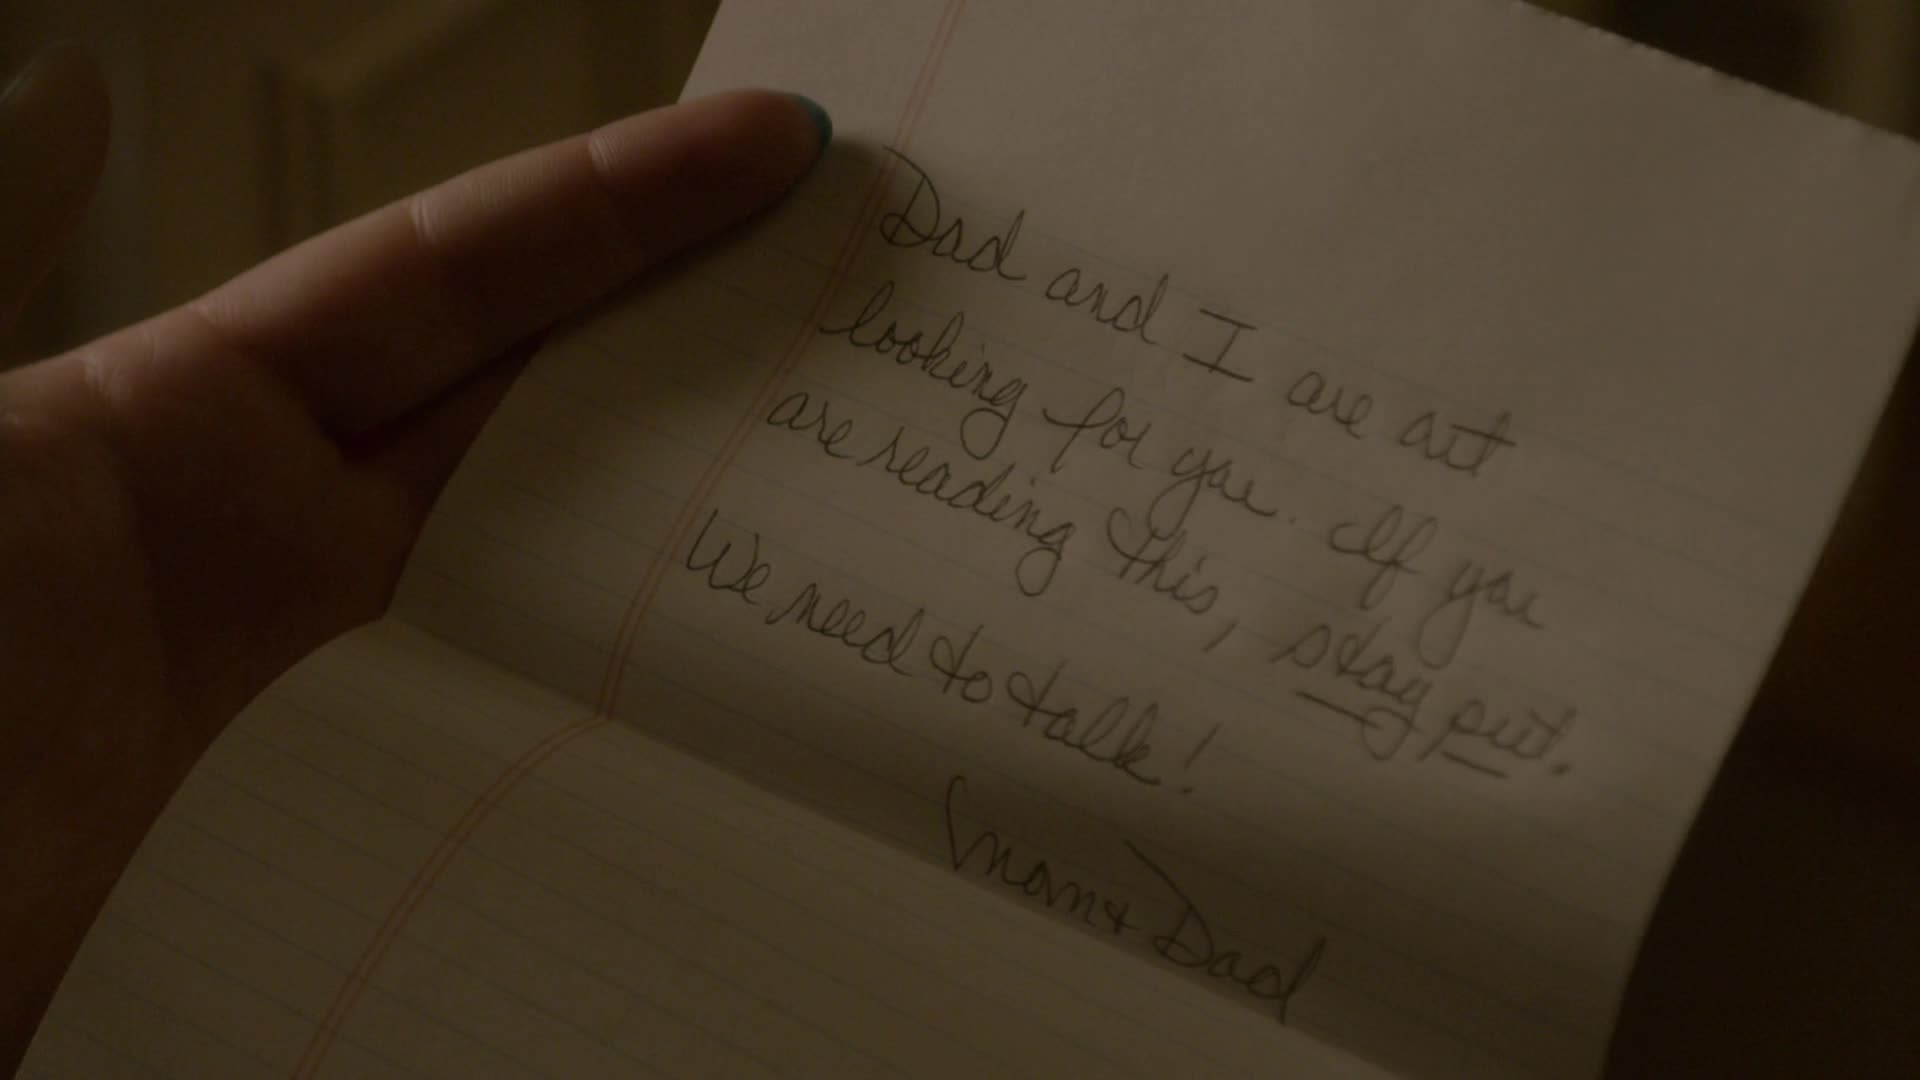 Dad and I are out
looking for you. If you
are reading this, stay put.
We need to talk!
Mom + Dad